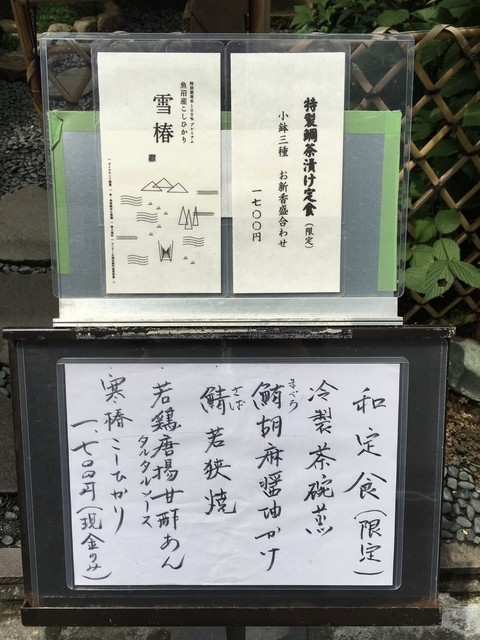 特製鯛茶漬け定食(限定)
小鉢三種 お新香盛合わせ
一七〇〇円
魚沼産こしひかり
雪椿
和定食(限定)
冷製茶碗蒸
まぐろ
鮪胡麻醤油かけ
さば
鯖若狭焼
若鶏唐揚甘酢あん
タルタルソース
寒椿こしひかり
一、七〇〇円(現金のみ)